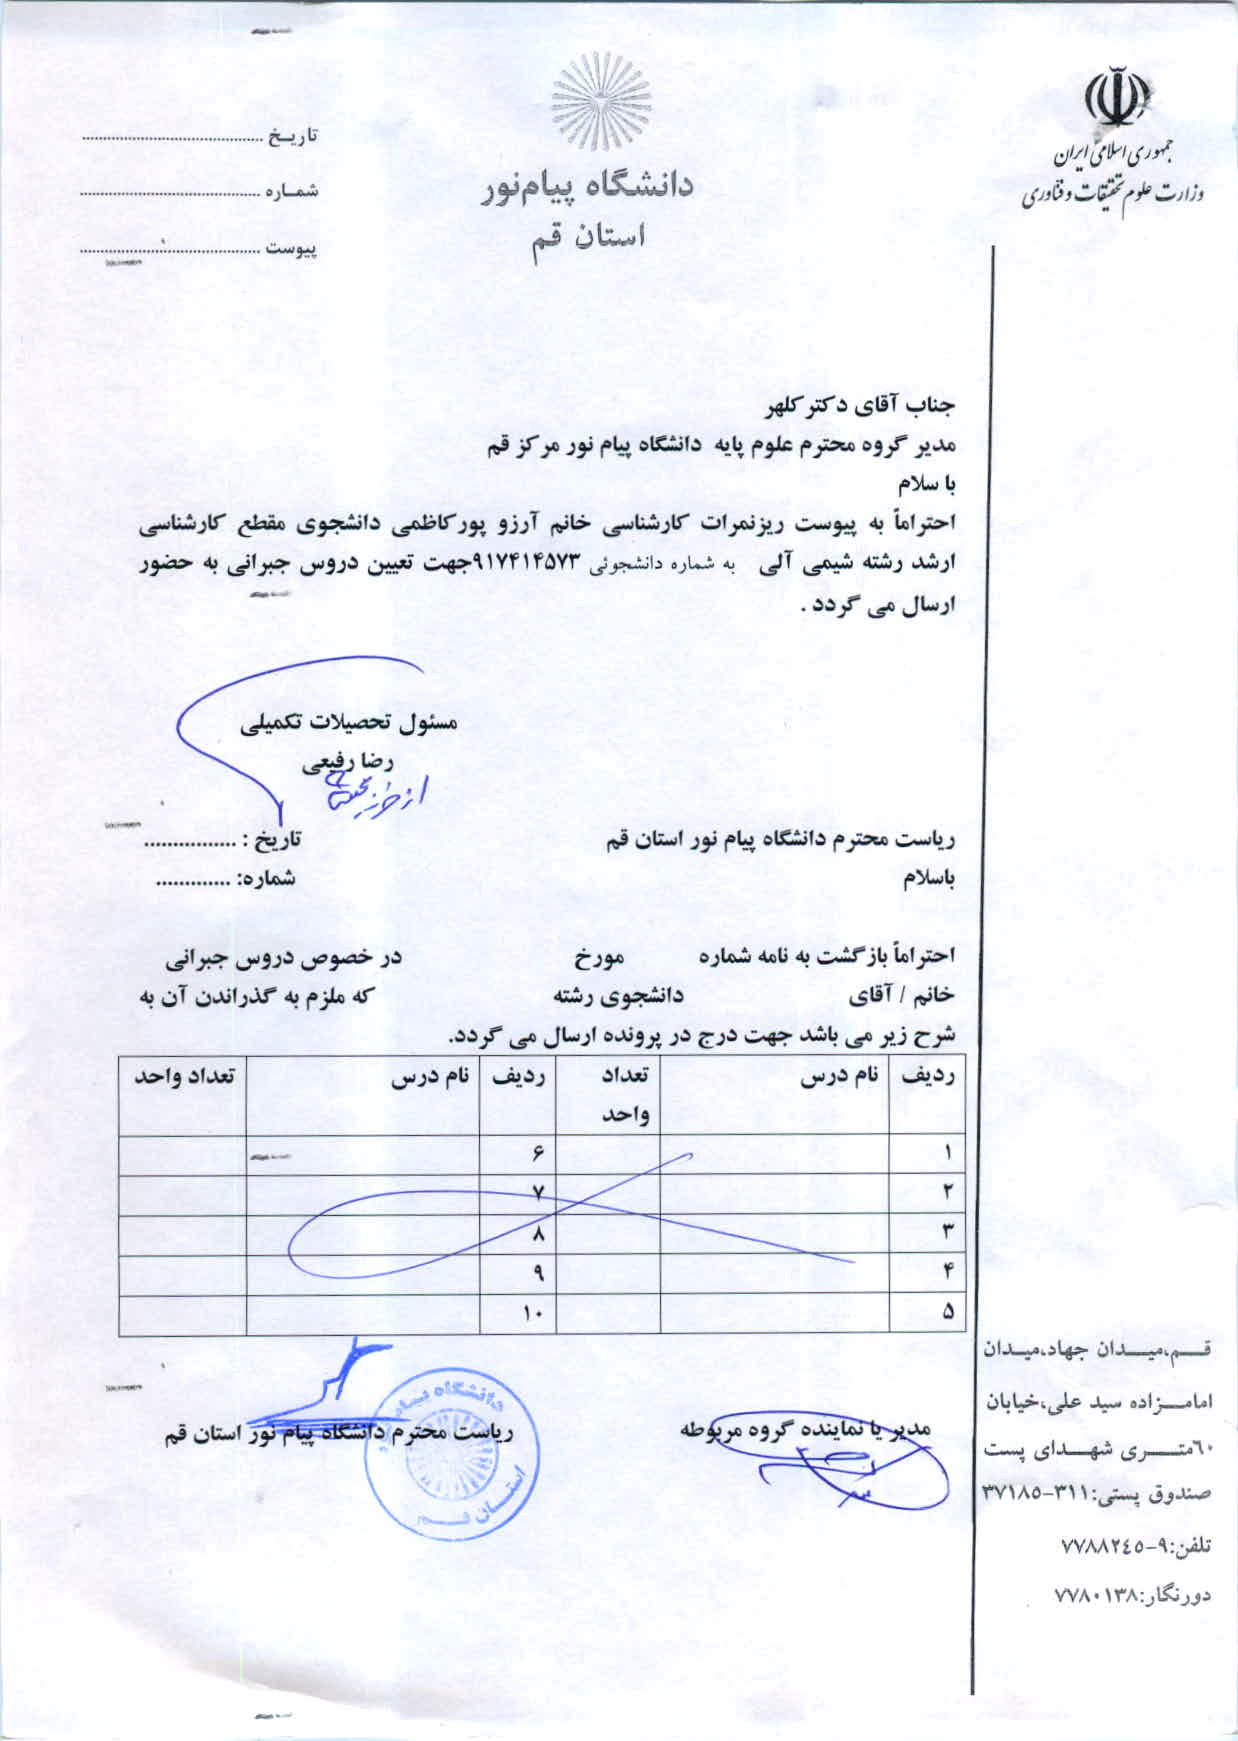 جمهوری اسلامی ایران
وزارت علوم تحقیقات و فناوری
دانشگاه پیام‌نور
استان قم
تاریـخ ........................................
شمـاره ........................................
پیوست ........................................
جناب آقای دکتر کلهر
مدیر گروه محترم علوم پایه دانشگاه پیام نور مرکز قم
با سلام
احتراماً به پیوست ریزنمرات کارشناسی خانم آرزو پورکاظمی دانشجوی مقطع کارشناسی
ارشد رشته شیمی آلی به شماره دانشجوئی ۹۱۷۴۱۴۵۷۳جهت تعیین دروس جبرانی به حضور
ارسال می گردد .
مسئول تحصیلات تکمیلی
رضا رفیعی
ریاست محترم دانشگاه پیام نور استان قم
تاریخ : ................
باسلام
شماره: .............
احتراماً بازگشت به نامه شماره مورخ در خصوص دروس جبرانی
خانم / آقای دانشجوی رشته که ملزم به گذراندن آن به
شرح زیر می باشد جهت درج در پرونده ارسال می گردد.
ردیف نام درس تعداد واحد ردیف نام درس تعداد واحد
۱ ۶
۲ ۷
۳ ۸
۴ ۹
۵ ۱۰
مدیر یا نماینده گروه مربوطه
ریاست محترم دانشگاه پیام نور استان قم
استـان قـم
قـــم،میـــدان جهاد،میـدان
امامـــزاده سید علی،خیابان
٦٠متـــری شهـــدای پست
صندوق پستی:۳۱۱-۳۷۱۸۵
تلفن:۹-۷۷۸۸۲٤٥
دورنگار:۷۷۸۰۱۳۸